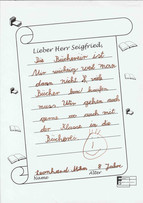 Lieber Herr Seigfried,
Die Bücherei ist
Mir wichtig weil man
dann nicht so viele
Bücher kaufen
muss. Wir gehen auch
gerne so auch mit
der Klasse in die
Bücherei.
1
Leonhard 8 Jahre
Name Alter